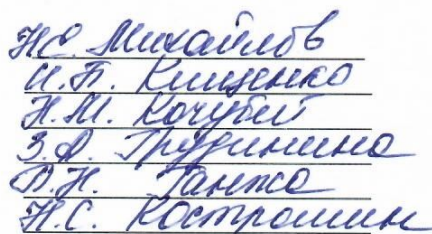 Н.Е. Михайлов
И.П. Клищенко
Н.М. Кочубей
З.А. Грудинина
В.Н. Ганжа
Н.С. Костромин